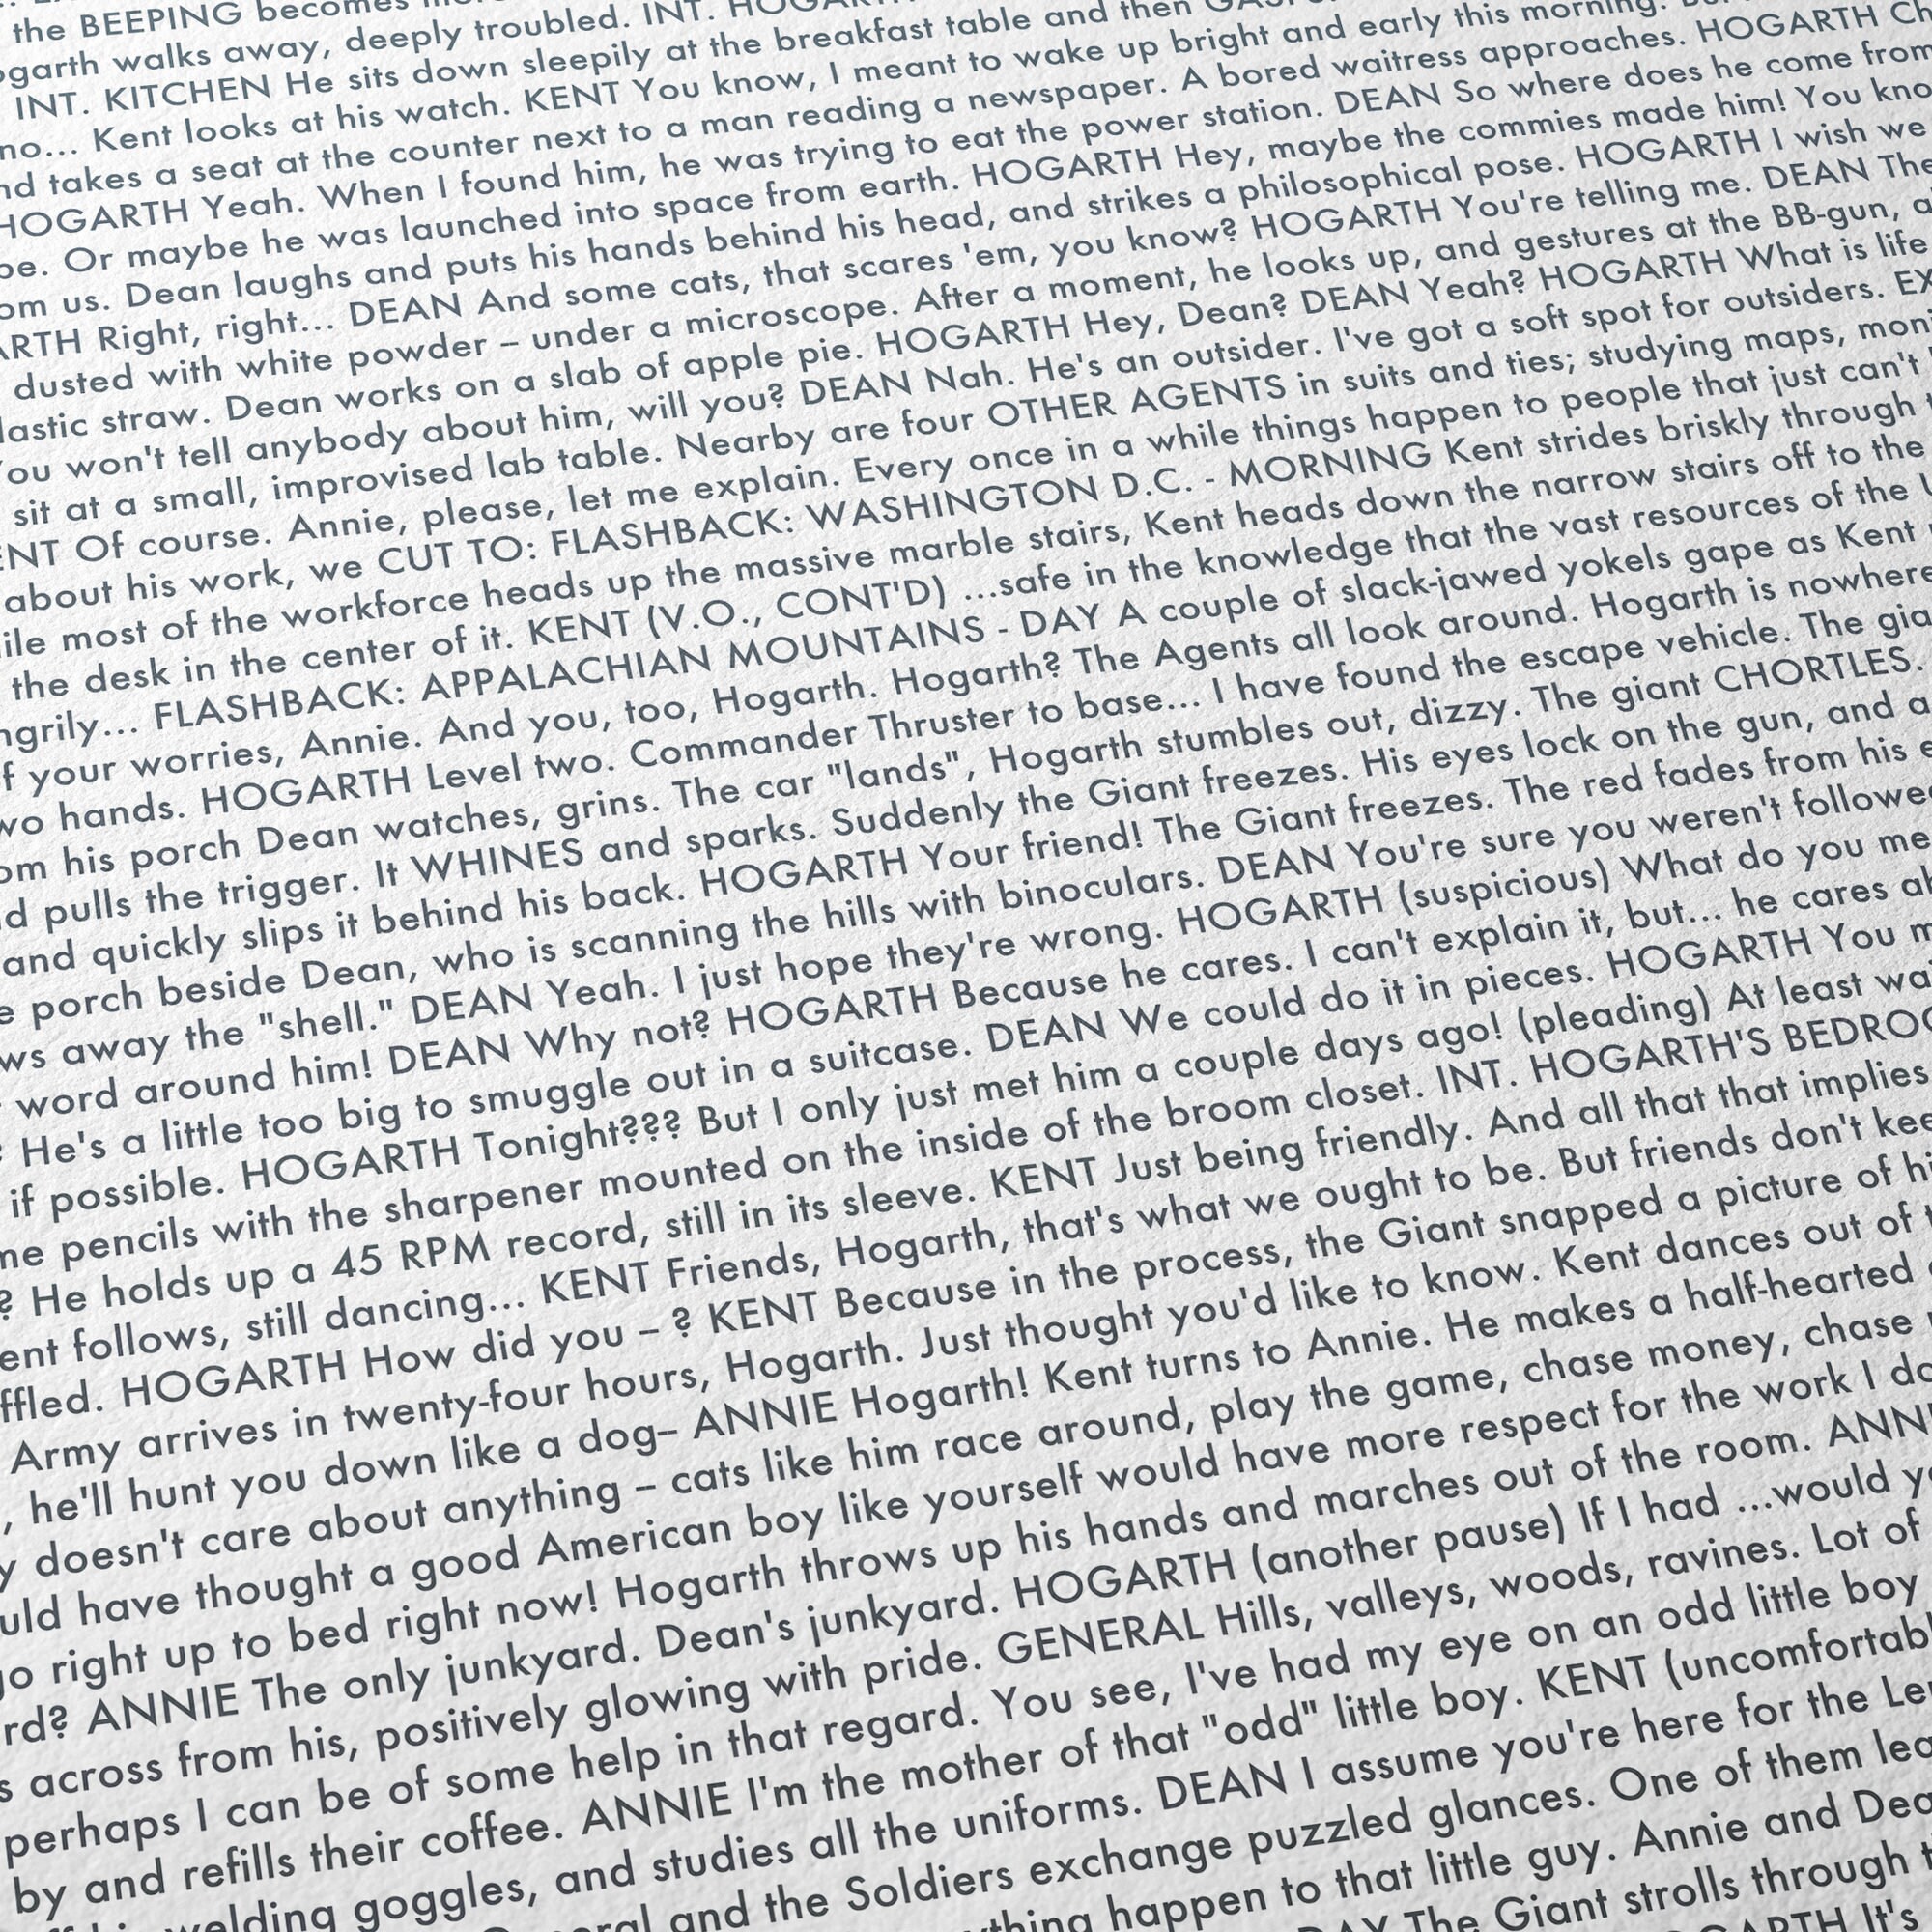 the BEEPING becomes
ogarth walks away, deeply troubled. INT.
INT. KITCHEN He sits down sleepily at the breakfast table and then
no... Kent looks at his watch. KENT You know, I meant to wake up bright and early this morning.
nd takes a seat at the counter next to a man reading a newspaper. A bored waitress approaches. HOGARTH Ch
HOGARTH Yeah. When I found him, he was trying to eat the power station. DEAN So where does he come from
be. Or maybe he was launched into space from earth. HOGARTH Hey, maybe the commies made him! You kno
om us. Dean laughs and puts his hands behind his head, and strikes a philosophical pose. HOGARTH I wish we
ARTH Right, right... DEAN And some cats, that scares 'em, you know? HOGARTH You're telling me. DEAN The
dusted with white powder – under a microscope. After a moment, he looks up, and gestures at the BB-gun, a
lastic straw. Dean works on a slab of apple pie. HOGARTH Hey, Dean? DEAN Yeah? HOGARTH What is life
You won't tell anybody about him, will you? DEAN Nah. He's an outsider. I've got a soft spot for outsiders. EX
sit at a small, improvised lab table. Nearby are four OTHER AGENTS in suits and ties; studying maps, mon
ENT Of course. Annie, please, let me explain. Every once in a while things happen to people that just can't
about his work, we CUT TO: FLASHBACK: WASHINGTON D.C. - MORNING Kent strides briskly through
ile most of the workforce heads up the massive marble stairs, Kent heads down the narrow stairs off to the
the desk in the center of it. KENT (V.O., CONT'D) ...safe in the knowledge that the vast resources of the U
ngrily... FLASHBACK: APPALACHIAN MOUNTAINS - DAY A couple of slack-jawed yokels gape as Kent
f your worries, Annie. And you, too, Hogarth. Hogarth? The Agents all look around. Hogarth is nowhere
wo hands. HOGARTH Level two. Commander Thruster to base... I have found the escape vehicle. The gia
om his porch Dean watches, grins. The car "lands", Hogarth stumbles out, dizzy. The giant CHORTLES.
d pulls the trigger. It WHINES and sparks. Suddenly the Giant freezes. His eyes lock on the gun, and a
and quickly slips it behind his back. HOGARTH Your friend! The Giant freezes. The red fades from his e
e porch beside Dean, who is scanning the hills with binoculars. DEAN You're sure you weren't followe
ws away the "shell." DEAN Yeah. I just hope they're wrong. HOGARTH (suspicious) What do you me
word around him! DEAN Why not? HOGARTH Because he cares. I can't explain it, but... he cares ab
? He's a little too big to smuggle out in a suitcase. DEAN We could do it in pieces. HOGARTH You m
if possible. HOGARTH Tonight??? But I only just met him a couple days ago! (pleading) At least wai
me pencils with the sharpener mounted on the inside of the broom closet. INT. HOGARTH'S BEDROO
? He holds up a 45 RPM record, still in its sleeve. KENT Just being friendly. And all that that implies
ent follows, still dancing... KENT Friends, Hogarth, that's what we ought to be. But friends don't kee
ffled. HOGARTH How did you – ? KENT Because in the process, the Giant snapped a picture of hi
Army arrives in twenty-four hours, Hogarth. Just thought you'd like to know. Kent dances out of t
, he'll hunt you down like a dog– ANNIE Hogarth! Kent turns to Annie. He makes a half-hearted
y doesn't care about anything – cats like him race around, play the game, chase money, chase
uld have thought a good American boy like yourself would have more respect for the work I do
go right up to bed right now! Hogarth throws up his hands and marches out of the room. ANN
rd? ANNIE The only junkyard. Dean's junkyard. HOGARTH (another pause) If I had ...would y
s across from his, positively glowing with pride. GENERAL Hills, valleys, woods, ravines. Lot of
perhaps I can be of some help in that regard. You see, I've had my eye on an odd little boy
by and refills their coffee. ANNIE I'm the mother of that "odd" little boy. KENT (uncomfortab
welding goggles, and studies all the uniforms. DEAN I assume you're here for the Le
and the Soldiers exchange puzzled glances. One of them lea
happen to that little guy. Annie and Dea
The Giant strolls through
It's